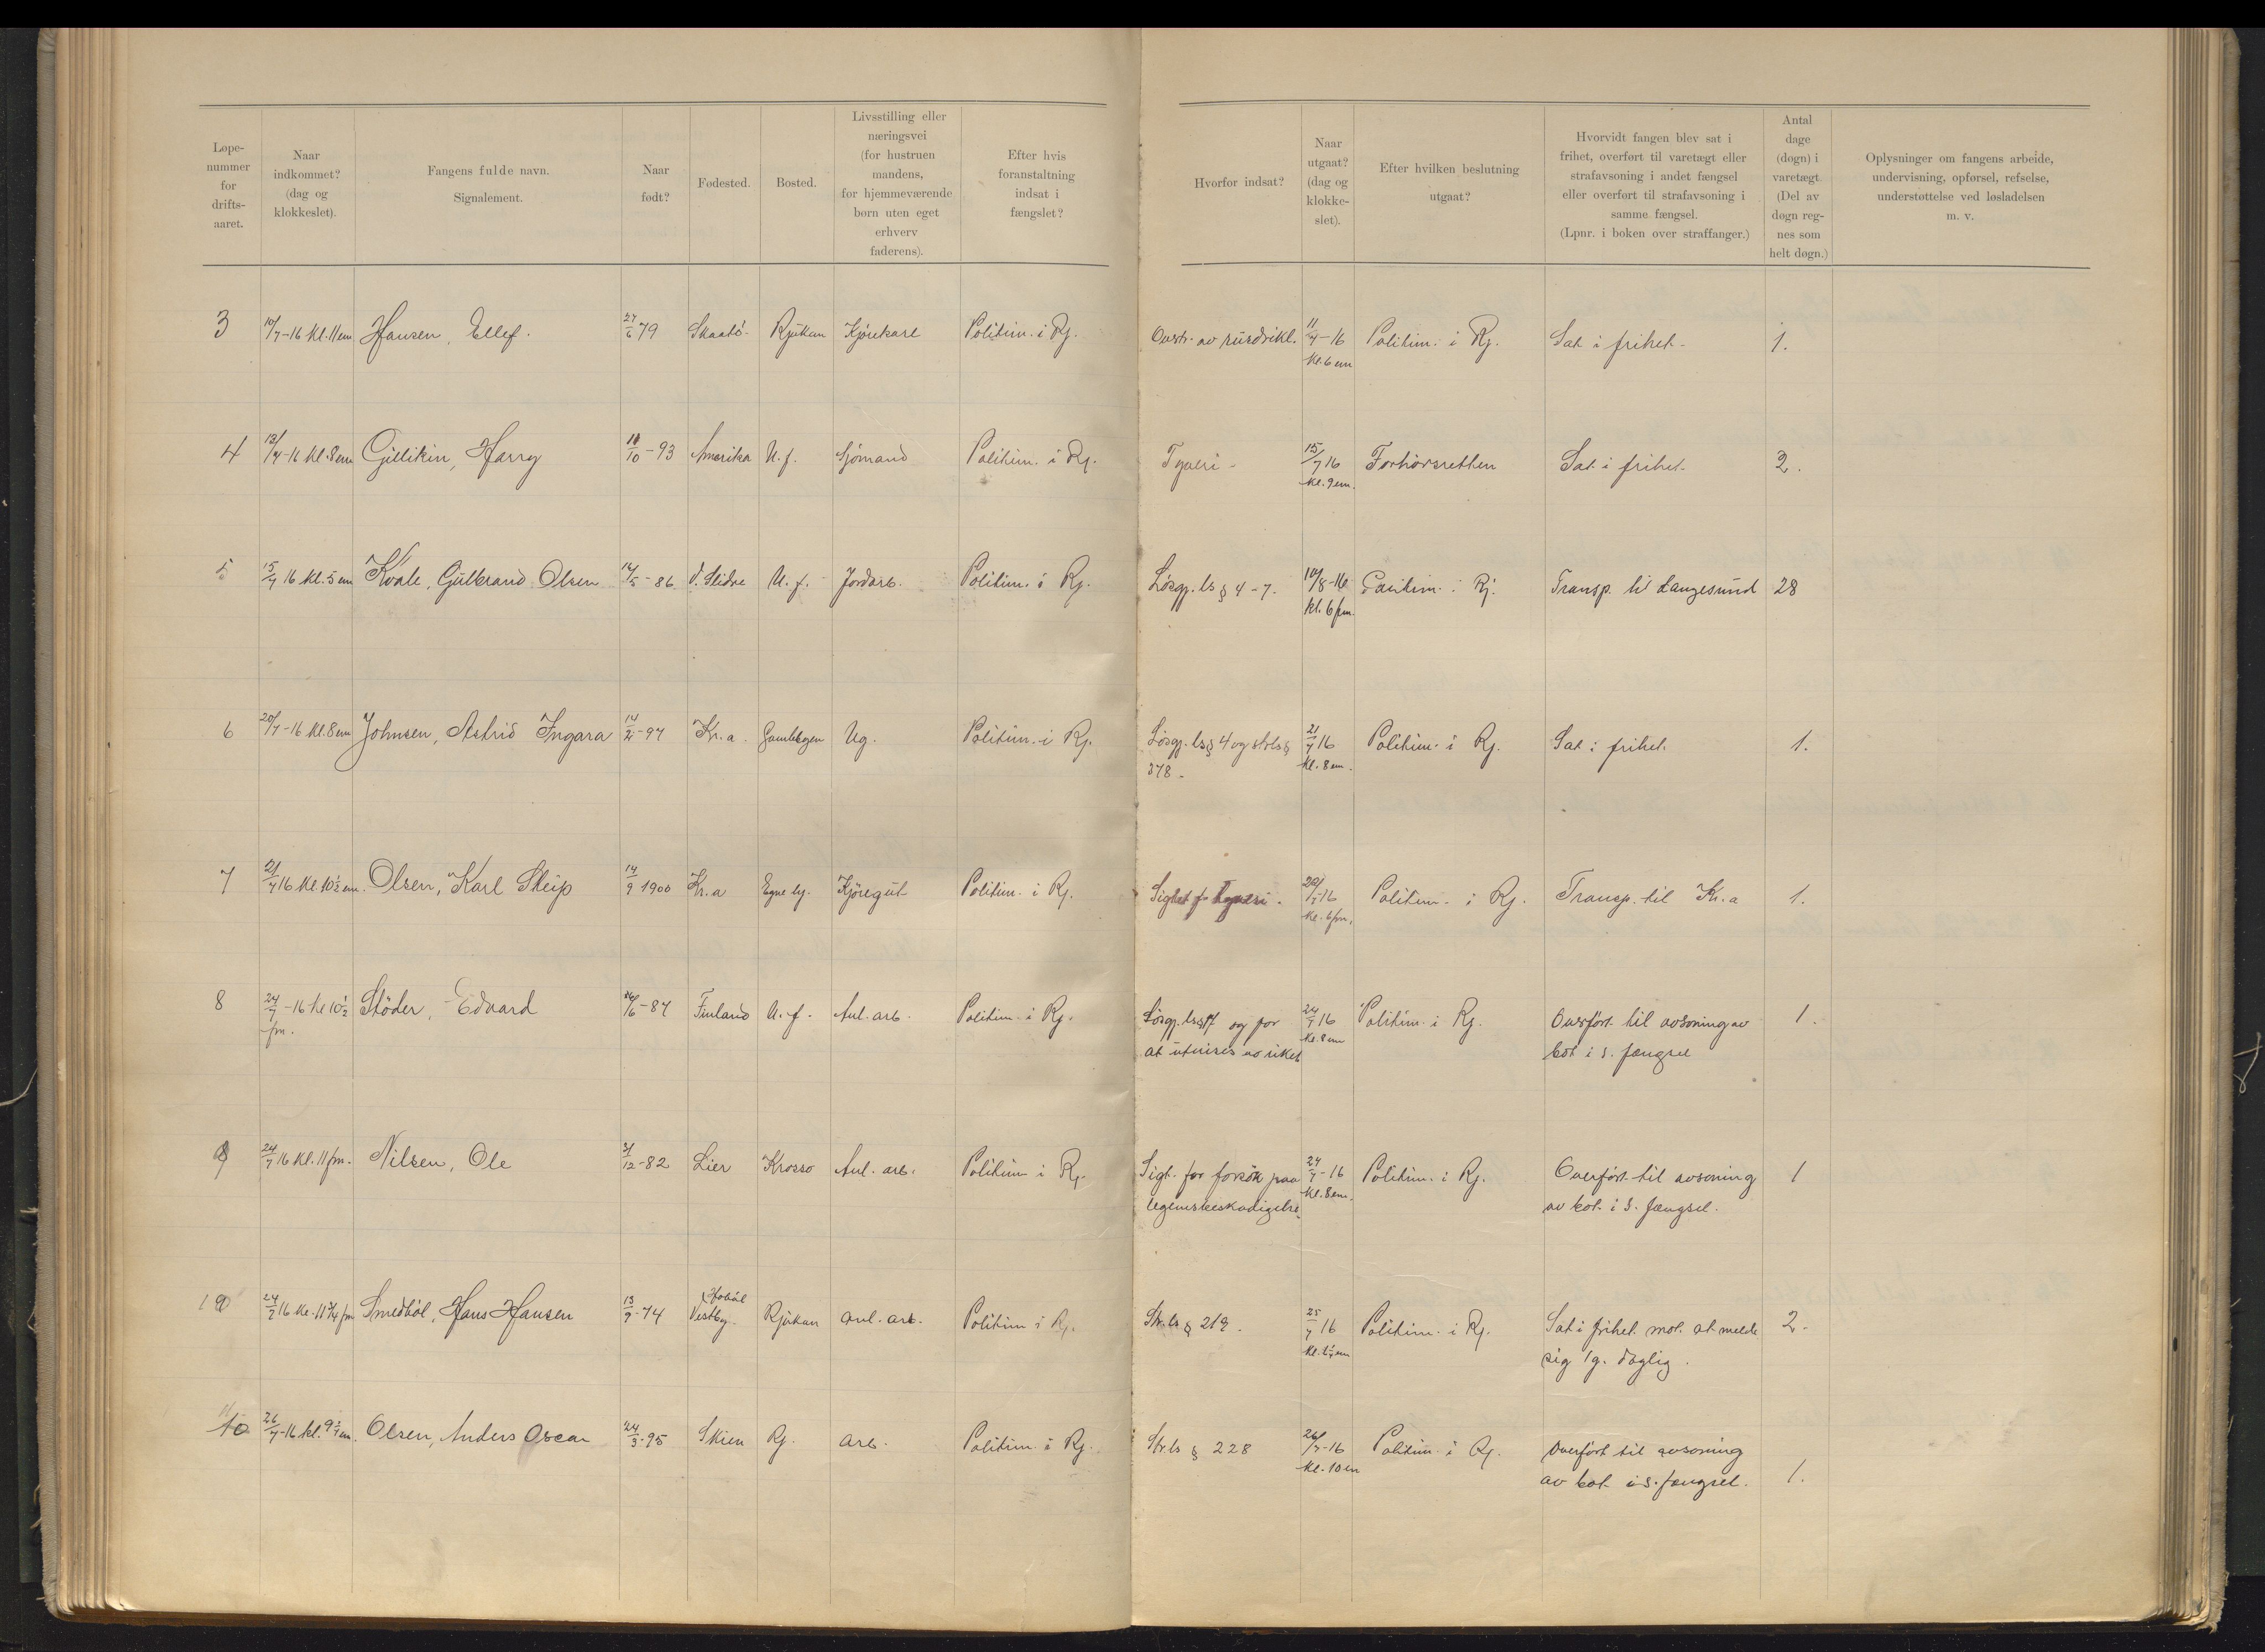 Løpe-
nummer
for
drifts-
aaret.
Naar
indkommet?
(dag og
klokkeslet).
Fangens fulde navn.
Signalement.
Naar
født?
Fødested.
Bosted.
Livsstilling eller
næringsvei
(for hustruen
mandens,
for hjemmeværende
børn uten eget
erhverv
faderens).
Efter hvis
foranstaltning
indsat i
fængslet?
Hvorfor indsat?
Naar
utgaat?
(dag og
klokke-
slet).
Efter hvilken beslutning
utgaat?
Hvorvidt fangen blev sat i
frihet, overført til varetægt eller
strafavsoning i andet fængsel
eller overført til strafavsoning i
samme fængsel.
(Lpnr. i boken over straffanger.)
Antal
dage
(døgn) i
varetægt.
(Del av
døgn reg-
nes som
helt døgn.)
Oplysninger om fangens arbeide,
undervisning, opførsel, refselse,
understøttelse ved løsladelsen
m. v.
3 10/7-16 kl. 11 em Hansen, Ellef. 27/6 79 Skaatö Rjukan Kjörekarl Politim. i Rj. Overtr. av rusdrikl. 11/7-16 Politim. i Rj. Sat i frihet 1.
kl. 6 em
4 13/7-16 kl. 8 em Gillikin, Harry /10-93 Amerika U. f. Sjömand Politim. i Rj. Tyveri - 15/7 16 Forhörsretten Sat i frihet 2.
kl. 9 em.
5 15/7 16 kl. 5 em Kvale, Gulbrand Olsen 14/5-86 V. Slidre U. f. Jordarb. Politim. i Rj. Lösgj. ls § 4-7. 10/8-16 Politim. i Rj. Transp. til Langesund 28
kl. 6 fm.
6 20/7-16 kl. 8 em Johnsen, Astrid Ingara 14/2-97 Kr.a. Gamlebyen Ug. Politim. i Rj. Lösgj. ls § 4 og strls § 21/7 16 Politim. i Rj. Sat i frihet. 1.
378 - kl. 8 em.
7 21/7 16 kl. 10½ em. Olsen, Karl Skup 14/9 1900 Kr.a Egne by. Kjöregut Politim. i Rj. Sigtet f. tyveri. 22/7-16 Politim. i Rj. Transp. til Kr.a 1.
kl. 6 fm.
8 24/7-16 kl 10½ Stöder, Edvard /6-87 Finland U. f. Anl. arb. Politim. i Rj. Lösgj. ls og for 24/7 16 Politim. i Rj. Overfört til avsoning av 1.
fm. at utvises av riket kl. 8 em bot i s. fængsel
9 24/7 16 kl. 11 fm. Nilsen, Ole /12-82 Lier Krosso Anl. arb. Politim i Rj. Sigt. for forsök paa 24/7-16 Politim. i Rj. Overfört til avsoning 1
legemsbeskadigelse kl. 8 em. av bot i s. fængsel.
Hobøl
10 24/7 16 kl. 11¾ fm Smedböl, Hans Hansen 13/9-74 Vestby Rjukan Anl. arb. Politim i Rj. Str. ls § 219. 25/7 16 Politim. i Rj. Sat i frihet mot at melde 2.
sig 1 g. daglig.
11
10 26/7-16 kl. 9 em. Olsen, Anders Oscar 24/3-95 Skien Rj. arb. Politim. i Rj. Str. ls § 228 26/7-16 Politim i Rj. Overfört til avsoning
kl. 10 em av bot i s. fængsel. 1.